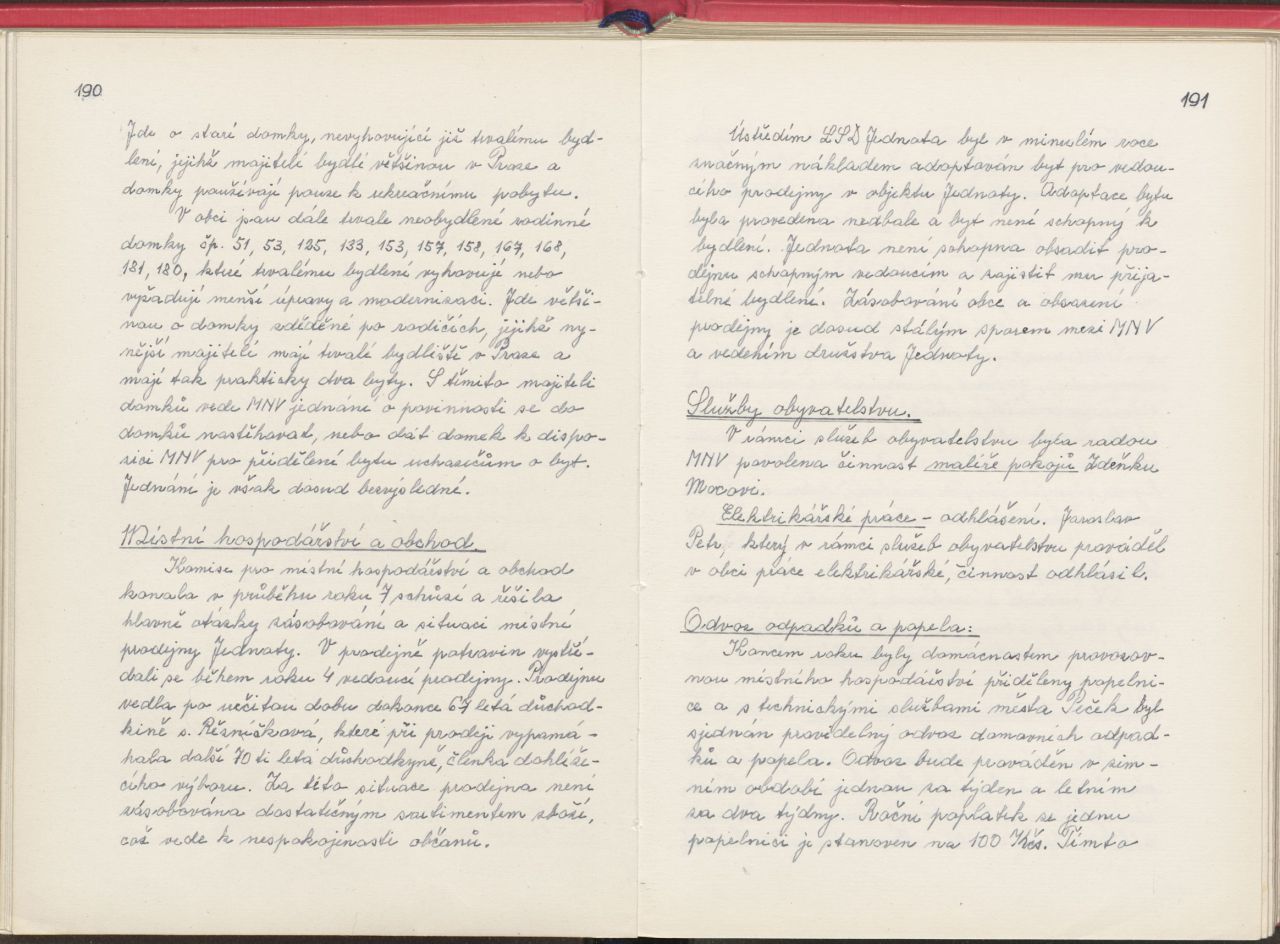 190
Jde o staré domky, nevyhovující již trvalému byd-
lení, jejichž majitelé bydlí většinou v Praze a
domky používají pouze k rekreačnímu pobytu.
V obci jsou dále trvale neobydlené rodinné
domky čp. 51, 53, 125, 133, 153, 157, 158, 167, 168,
181, 180, které trvalému bydlení vyhovují nebo
vyžadují menší úpravy a modernizaci. Jde větši-
nou o domky zděděné po rodičích, jejichž ny-
nější majitelé mají trvalé bydliště v Praze a
mají tak prakticky dva byty. S těmito majiteli
domků vede MNV jednání o povinnosti se do
domků nastěhovat, nebo dát domek k dispo-
zici MNV pro přidělení bytu uchazečům o byt.
Jednání je však dosud bezvýsledné.
Místní hospodářství a obchod.
Komise pro místní hospodářství a obchod
konala v průběhu roku 7 schůzí a řešila
hlavně otázky zásobování a situaci místní
prodejny Jednoty. V prodejně potravin vystří-
dali se během roku 4 vedoucí prodejny. Prodejnu
vedla po určitou dobu dokonce 67 letá důchod-
kině s. Řezníčková, které při prodeji vypomá-
hala další 70 ti letá důchodkyně, členka dohlíže-
cího výboru. Za této situace prodejna není
zásobována dostatečným sortimentem zboží,
což vede k nespokojenosti občanů.
191
Ústředím LSD Jednota byl v minulém roce
značným nákladem adoptován byt pro vedou-
cího prodejny v objektu Jednoty. Adoptace bytu
byla provedena nedbale a byt není schopný k
bydlení. Jednota není schopna obsadit pro-
dejnu schopným vedoucím a zajistit mu přija-
telné bydlení. Zásobování obce a obsazení
prodejny je dosud stálým sporem mezi MNV
a vedením družstva Jednoty.
Služby obyvatelstvu.
V rámci služeb obyvatelstvu byla radou
MNV povolena činnost malíře pokojů Zdeňku
Mocovi.
Elektrikářské práce - odhlášení. Jaroslav
Petr, který v rámci služeb obyvatelstvu prováděl
v obci práce elektrikářské, činnost odhlásil.
Odvoz odpadků a popela:
Koncem roku byly domácnostem provozov-
nou místního hospodářství přiděleny popelni-
ce a s technickými službami města Peček byl
sjednán pravidelný odvoz domovních odpad-
ků a popela. Odvoz bude prováděn v zim-
ním období jednou za týden a letním
za dva týdny. Roční poplatek ze jednu
popelnici je stanoven na 100 Kčs. Tímto